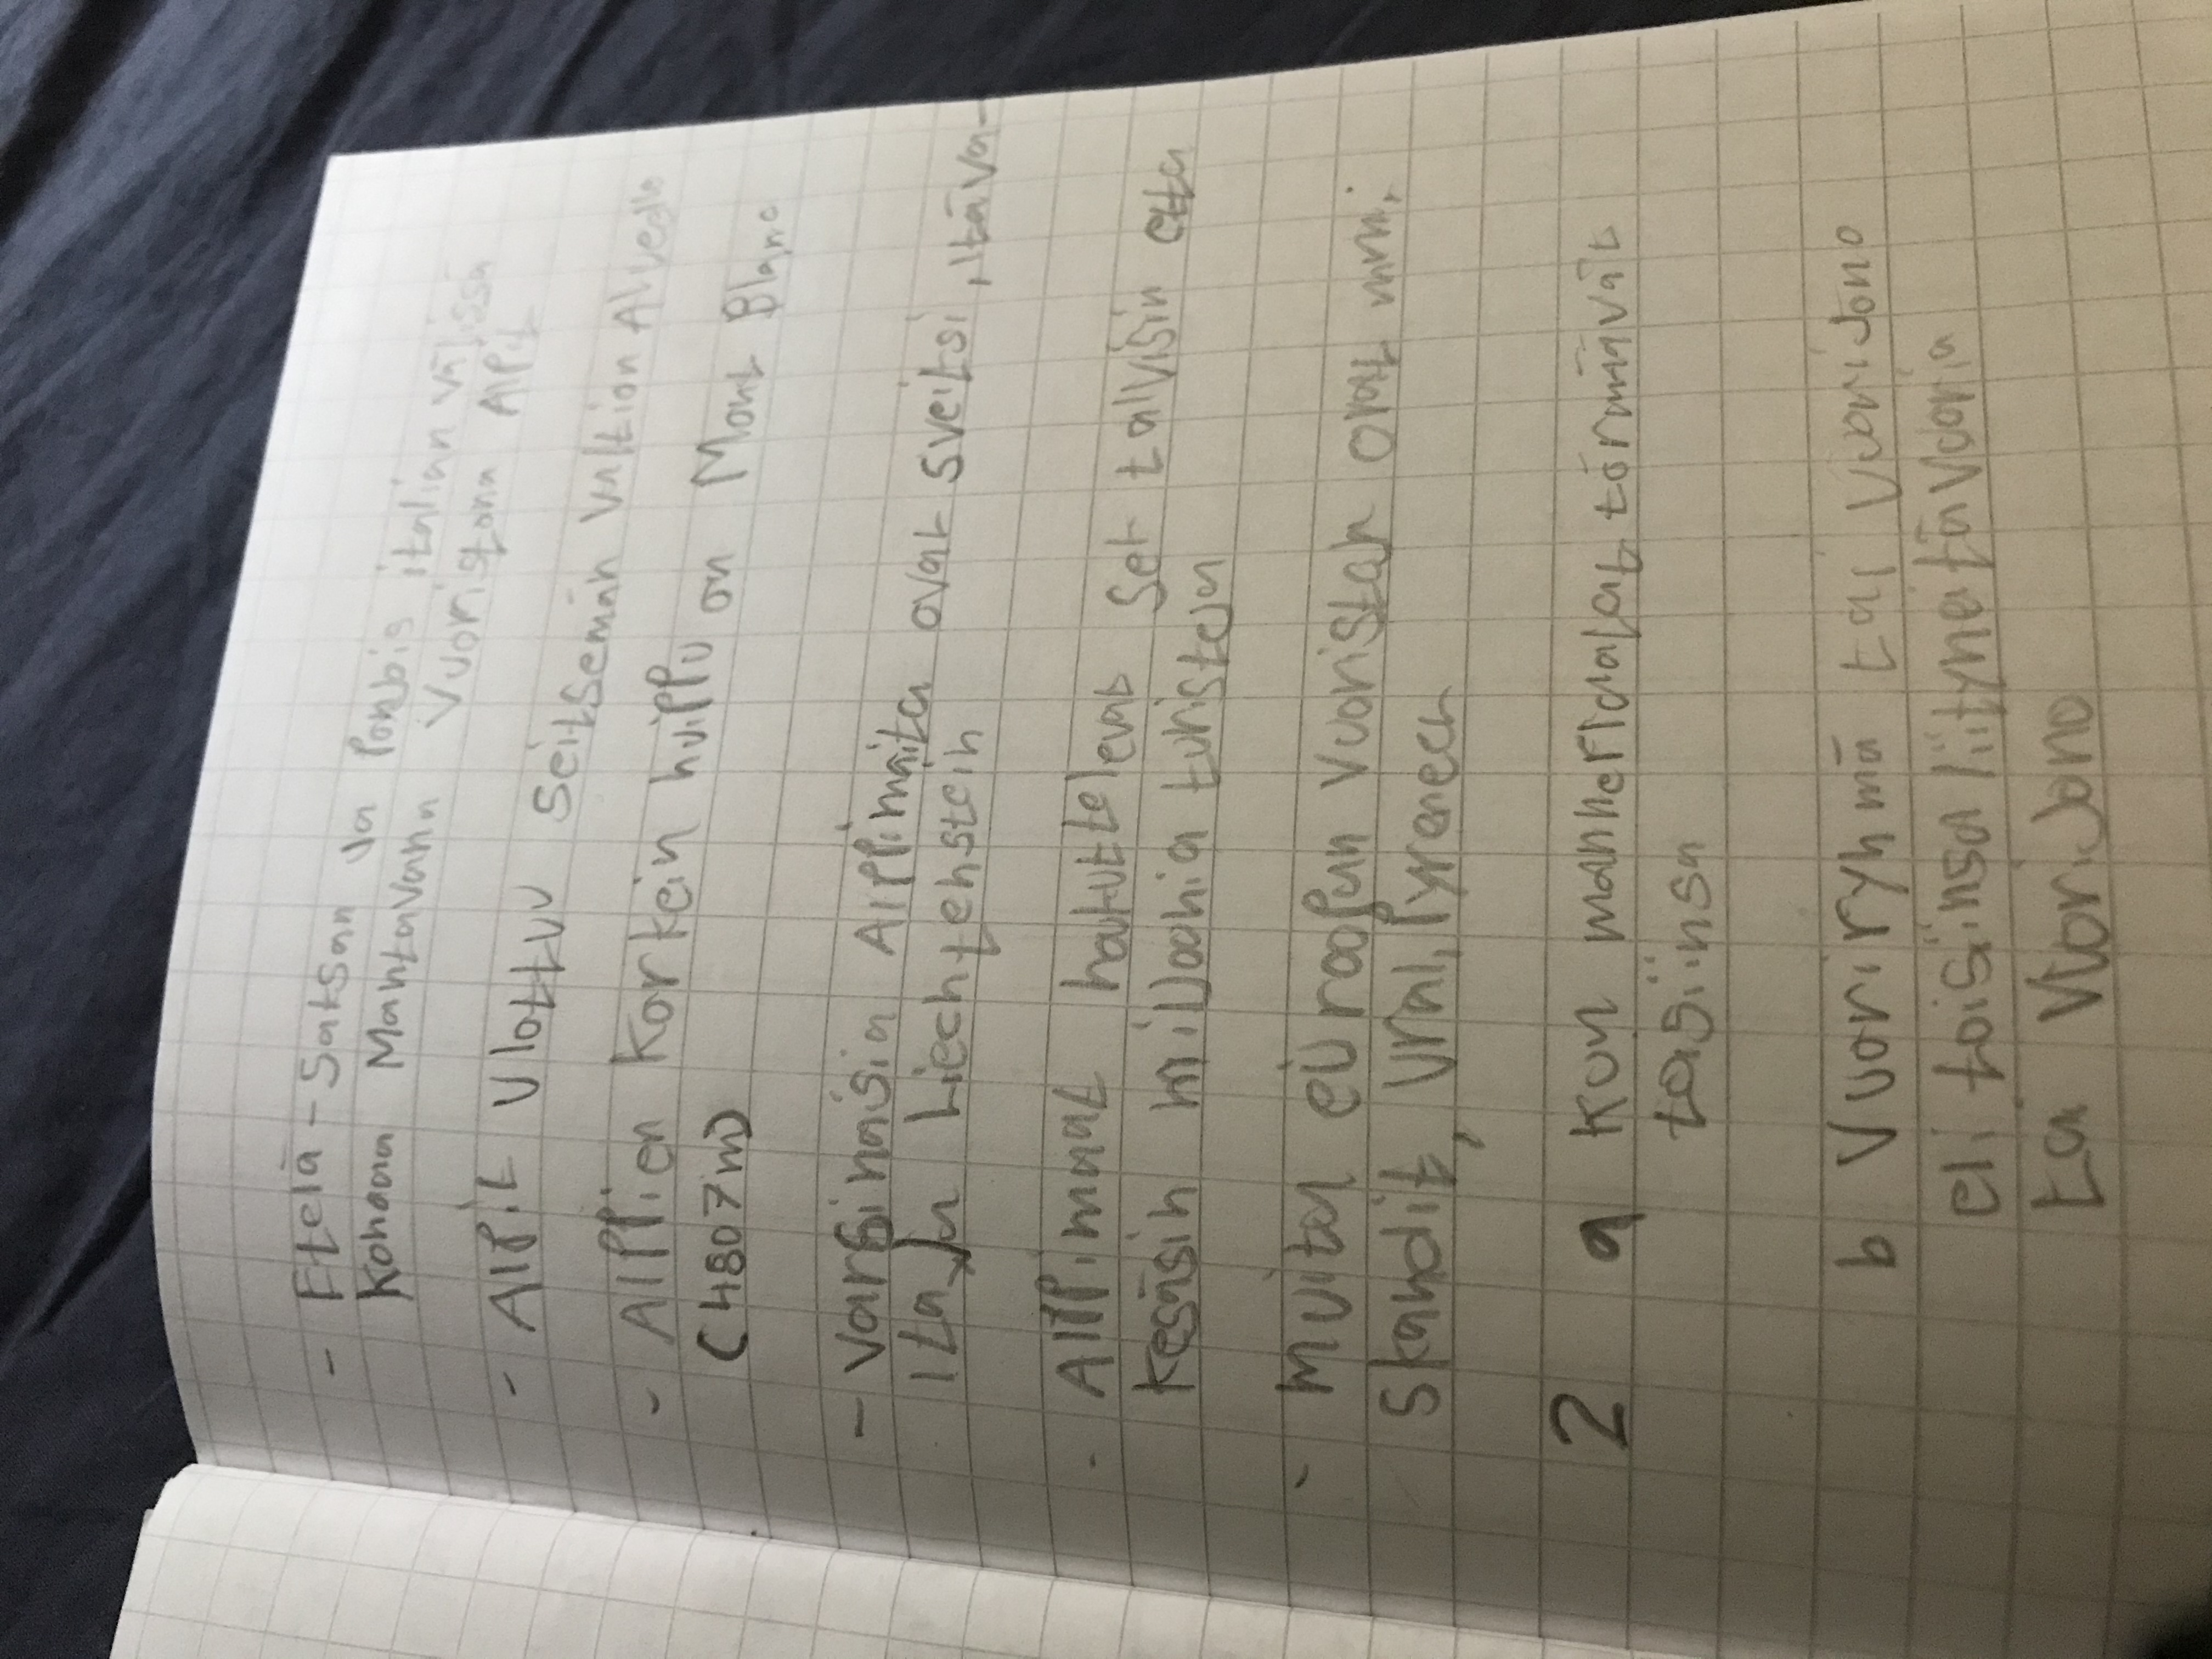 - Etelä-Satsan ja Ponbis italian välissä
Kohaaa Mahtavana Vuoristona Alpit
- Alpit Ulottuu Seitsemän valtion Alueelle
- Alppien Korkein huippu on Mont Blanc
(4807m)
- Varsinaisia Alppimaita ovat Sveitsi, Itäva-
lta ja Liechtenstein
- Alppimaat houkuttelevat Set talvisin että
kesäsin miljoonia turisteja
- Muita euroopan Vuoristoh ovat mm.
Skandit, Ural, Pyreneet
2 a Kun mannerlaatat törmäävät
toisiinsa
b Vuoriryhmä tai Vuorijono
eli toisiinsa liittyneitä Vuoria
La Vuorijono